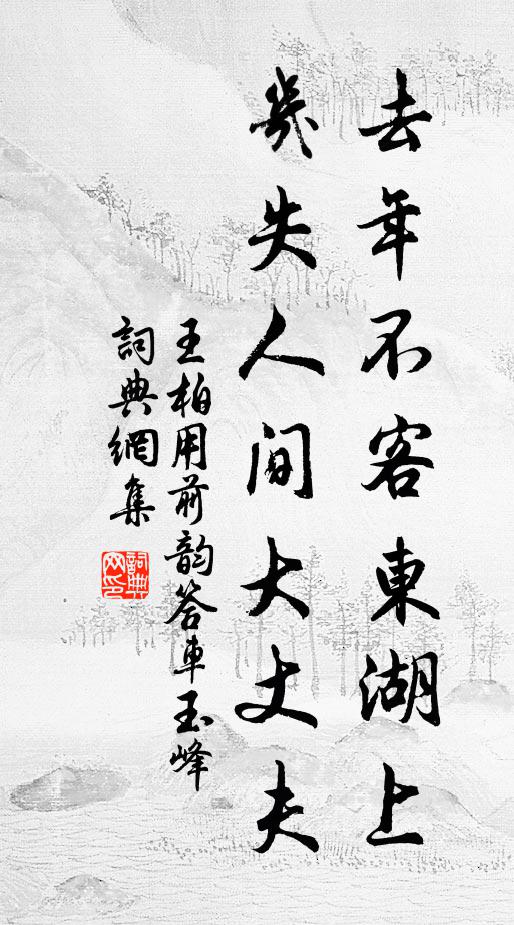 去年不客東湖上
幾失人間大丈夫
王柏用前韵答車玉峰
詞典網集
詞典
网印